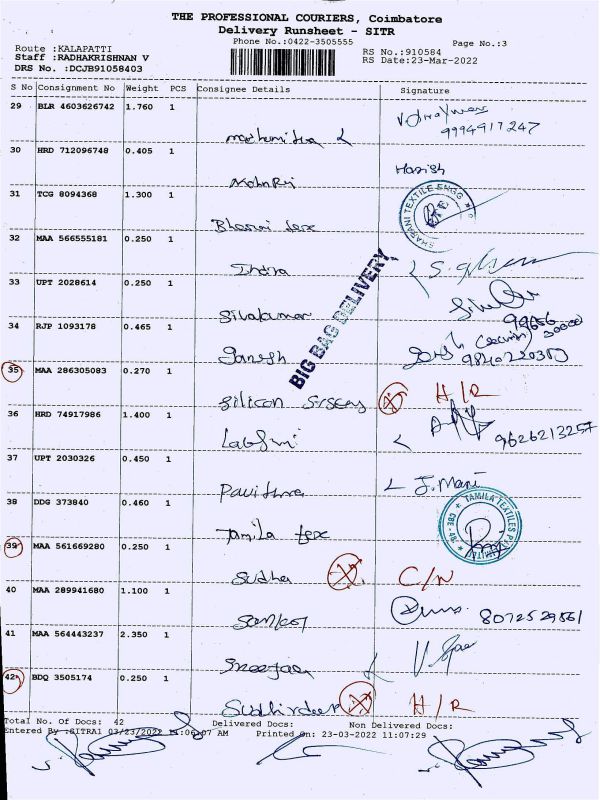 THE PROFESSIONAL COURIERS, Coimbatore
Delivery Runsheet - SITR
Phone No.:0422-3505555
Page No.:3
Route :KALAPATTI
Staff :RADHAKRISHNAN V
DRS No. :DCJB91058403
RS No.:910584
RS Date:23-Mar-2022
S No Consignment No Weight PCS Consignee Details Signature
29 BLR 4603626742 1.760 1
9994917247
30 HRD 712096748 0.405 1
Harish
31 TCG 8094368 1.300 1
Bharani tex
BHARANI TEXTILE ENGG
32 MAA 566555181 0.250 1
Indra
33 UPT 2028614 0.250 1
Sivakumar
34 RJP 1093178 0.465 1
Ganesh
BIG BAG DELIVERY
35 MAA 286305083 0.270 1
Silicon
H/R
36 HRD 74917986 1.400 1
Lakshmi
9626213257
37 UPT 2030326 0.450 1
Pavithra
J. Mani
38 DDG 373840 0.460 1
Tamila tex
TAMILA TEXTILES
39 MAA 561669280 0.250 1
Sudha
C/N
40 MAA 289941680 1.100 1
8072529861
41 MAA 564443237 2.350 1
42 BDQ 3505174 0.250 1
H/R
Total No. Of Docs: 42 Delivered Docs: Non Delivered Docs:
Entered By :SITRA1 03/23/2022 11:06:07 AM Printed On: 23-03-2022 11:07:29